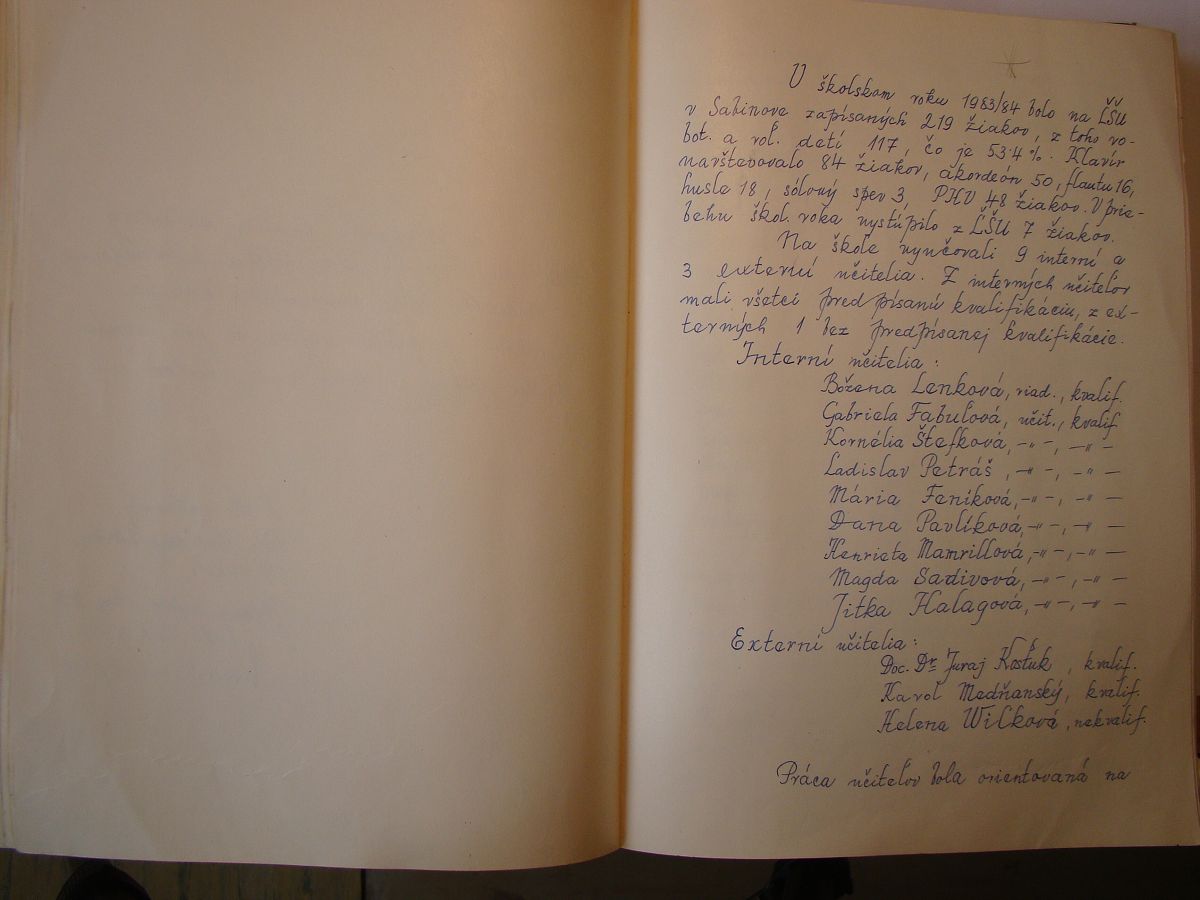 V školskom roku 1983/84 bolo na ĽŠU
v Sabinove zapísaných 219 žiakov, z toho ro-
bot. a roľ. detí 117, čo je 53.4%. Klavír
navštevovalo 84 žiakov, akordeón 50, flautu 16,
husle 18, sólový spev 3, PHV 48 žiakov. V prie-
behu škol. roka vystúpilo z ĽŠU 7 žiakov.
Na škole vyučovali 9 interní a
3 externí učitelia. Z interných učiteľov
mali všetci predpísanú kvalifikáciu, z ex-
terných 1 bez predpísanej kvalifikácie.
Interní učitelia :
Božena Lenková, riad., kvalif.
Gabriela Fabuľová, učit., kvalif
Kornélia Štefková, -"-, -"-
Ladislav Petráš, -"-, -"-
Mária Feníková, -"-, -"-
Dana Pavlíková, -"-, -"-
Henrieta Mamrillová, -"-, -"-
Magda Sadivová, -"-, -"-
Jitka Halagová, -"-, -"-
Externí učitelia :
Doc. Dr Juraj Kosťuk, kvalif.
Karol Medňanský, kvalif.
Helena Wilková, nekvalif.
Práca učiteľov bola orientovaná na